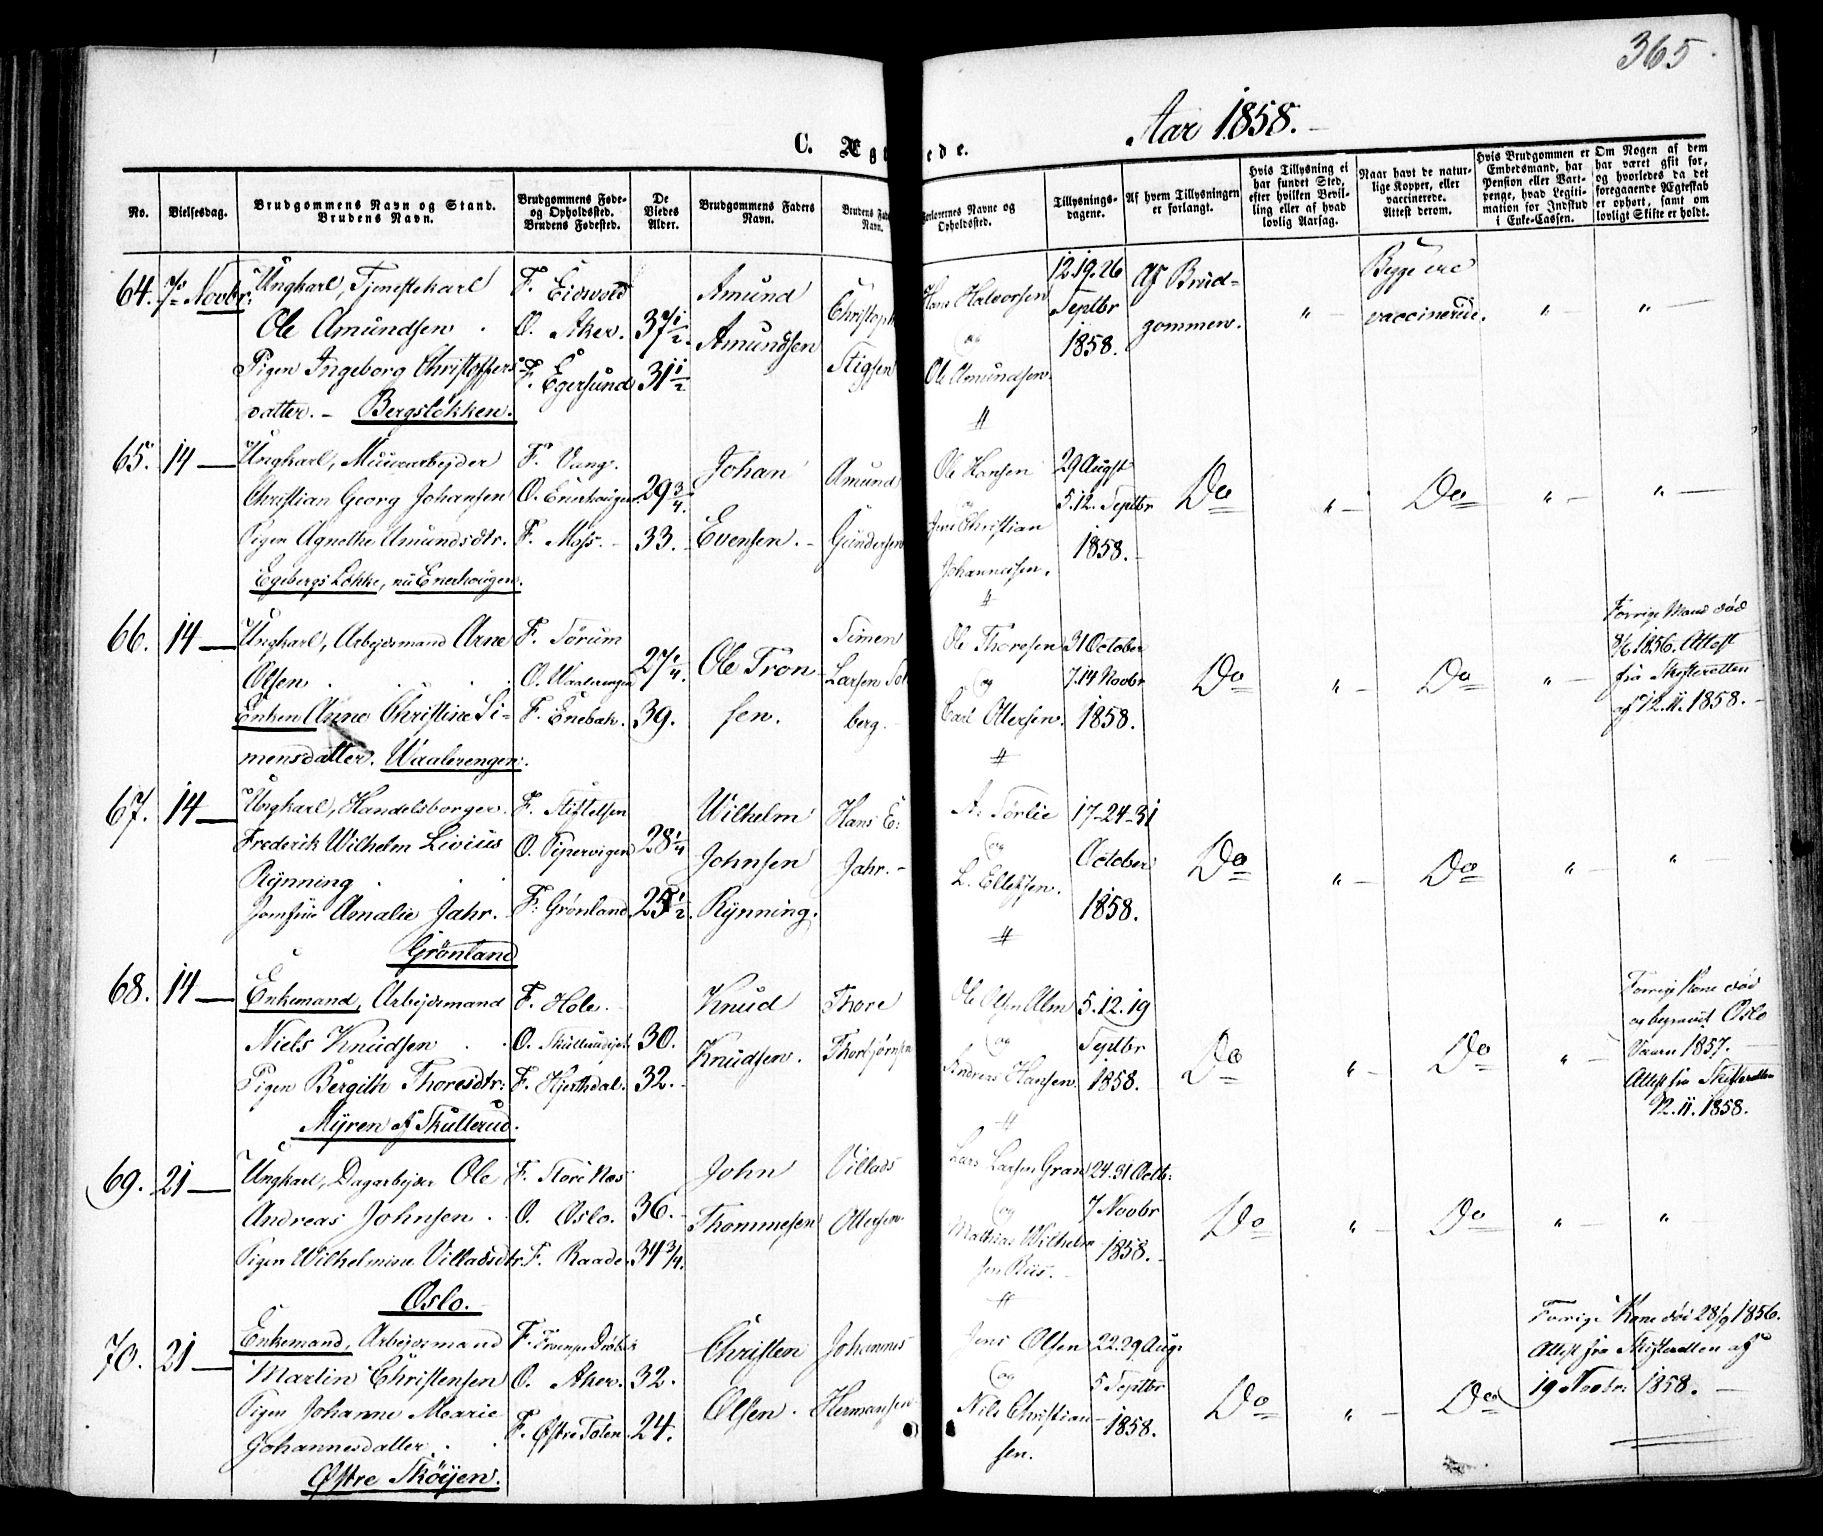 365
Aar 1858.
C. Ægt ede.
No.
Vielsesdag.
Brudgommens Navn og Stand.
Brudens Navn.
Brudgommens Føde-
og Opholdssted.
Brudens Fødested.
De
Viedes
Alder.
Brudgommens Faders
Navn.
Brudens Fad
Navn.
erlovernes Navne og
Opholdssted.
Tillysnings-
dagene.
Af hvem Tillysningen
er forlangt.
Hvis Tillysning ei
har fundet Sted,
efter hvilken Bevil-
ling eller af hvad
lovlig Aarsag.
Naar havt de natur-
lige Kopper, eller
vaccinerede.
Attest derom.
Hvis Brudgommen er
Embedsmand, har
Pension eller Vart-
penge, hvad Legiti-
mation for Indskud
i Enke-Cassen.
Om Nogen af dem
har været gift før,
og hvorledes da det
foregaaende Ægteskab
er ophørt, samt om
lovligt Skifte er holdt.
64.
7 Novbr.
Ungkarl, Tjenestekarl
Ole Amundsen
Pigen Ingeborg Christoffers
datter. - Bergsløkken.
F. Eidsvold
O. Aker.
F. Egersund
37 1/2.
31 1/2
Amund
Amundsen
Christoph
Stigsen
Hans Halvorsen
og
Ole Amundsen
12.19.26
Septbr
1858.
Af Brud-
gommen.
" -
Begge ere
vaccinerede.
" -
" -
65.
14 -
Ungkarl, Muurarbejder
Christian Georg Johansen
Pigen Agnethe Amundsdtr.
Egebergs Løkke, nu Enerhougen.
F. Vang.
O. Enerhougen
F. Moss.
29 3/4.
33.
Johan
Evensen. -
Amund
Gundersen
Ole Hansen
og
Jens Christian
Johannesen.
29 Augst
5.12. Septbr
1858.
Do
" -
Do
" -
" -
66.
14 -
Ungkarl, Arbejdsmand Arne
Olsen
Enken Anne Christine Si-
mensdatter. Waalerengen.
F. Sørum
O. Waalerengen
F. Enebak.
27 1/4.
39.
Ole Tron
sen.
Simen
Larsen Sol
berg.
Ole Thoresen
og
Carl Ottersen.
31 October
7.14 Novbr
1858.
Do
" -
Do
" -
Forrige Mand død
8/6 1856. Attest
fra Skifteretten
af 12.11.1858. -
67.
14 -
Ungkarl, Handelsborger
Frederik Wilhelm Livius
Rynning
Jomfrue Amalie Jahr.
Grønland
F. Stiftelsen
O. Pipervigen
F. Grønland
28 1/4
25 1/2
Wilhelm
Johnsen
Rynning.
Hans E:
Jahr. -
A. Tørlie
og
L. Ellefsen.
17-24-31
October
1858.
Do
" -
Do
" -
" -
68.
14 -
Enkemand, Arbejdsmand
Niels Knudsen
Pigen Bergith Thoresdtr:
Myren af Skullerud.
F. Hole.
O. Skullerudejet
F. Hjerthdal.
30.
32.
Knud
Knudsen.
Thore
Thorbjørnsen
Ole Olsen Alm
og
Andreas Hansen.
5.12.19
Septbr
1858.
Do
" -
Do
" -
Forrige Kone død
og begravet Oslo
Vaaren 1857. -
Attest fra Skifteretten
12.11.1858.
69.
21 -
Ungkarl, Dagarbejder Ole
Andreas Johnsen
Pigen Wilhelmine Villadsdtr.
Oslo.
F. Store Næs
O. Oslo.
F. Raade.
36.
34 3/4.
John
Thommesen
Villads
Ottersen
Lars Larsen Gran
og
Mathias Wilhelm-
sen Riis.
24.31 Octb:
7 Novbr
1858.
Do
" -
Do
" -
" -
70.
21 -
Enkemand, Arbejdsmand
Martin Christensen
Pigen Johanne Marie
Johannesdatter
Østre Skøyen.
O. Aker.
F. Østre Toten
32.
24.
Christen
Olsen.
Johannes
Hermansen
Jens Olsen
og
Nils Christian-
sen.
22.29 Aug:
5 Septbr
1858.
Do
" -
Do
Forrige Kone død 28/9 1856.
Attest fra Skifteretten af
19 Novbr 1858. -